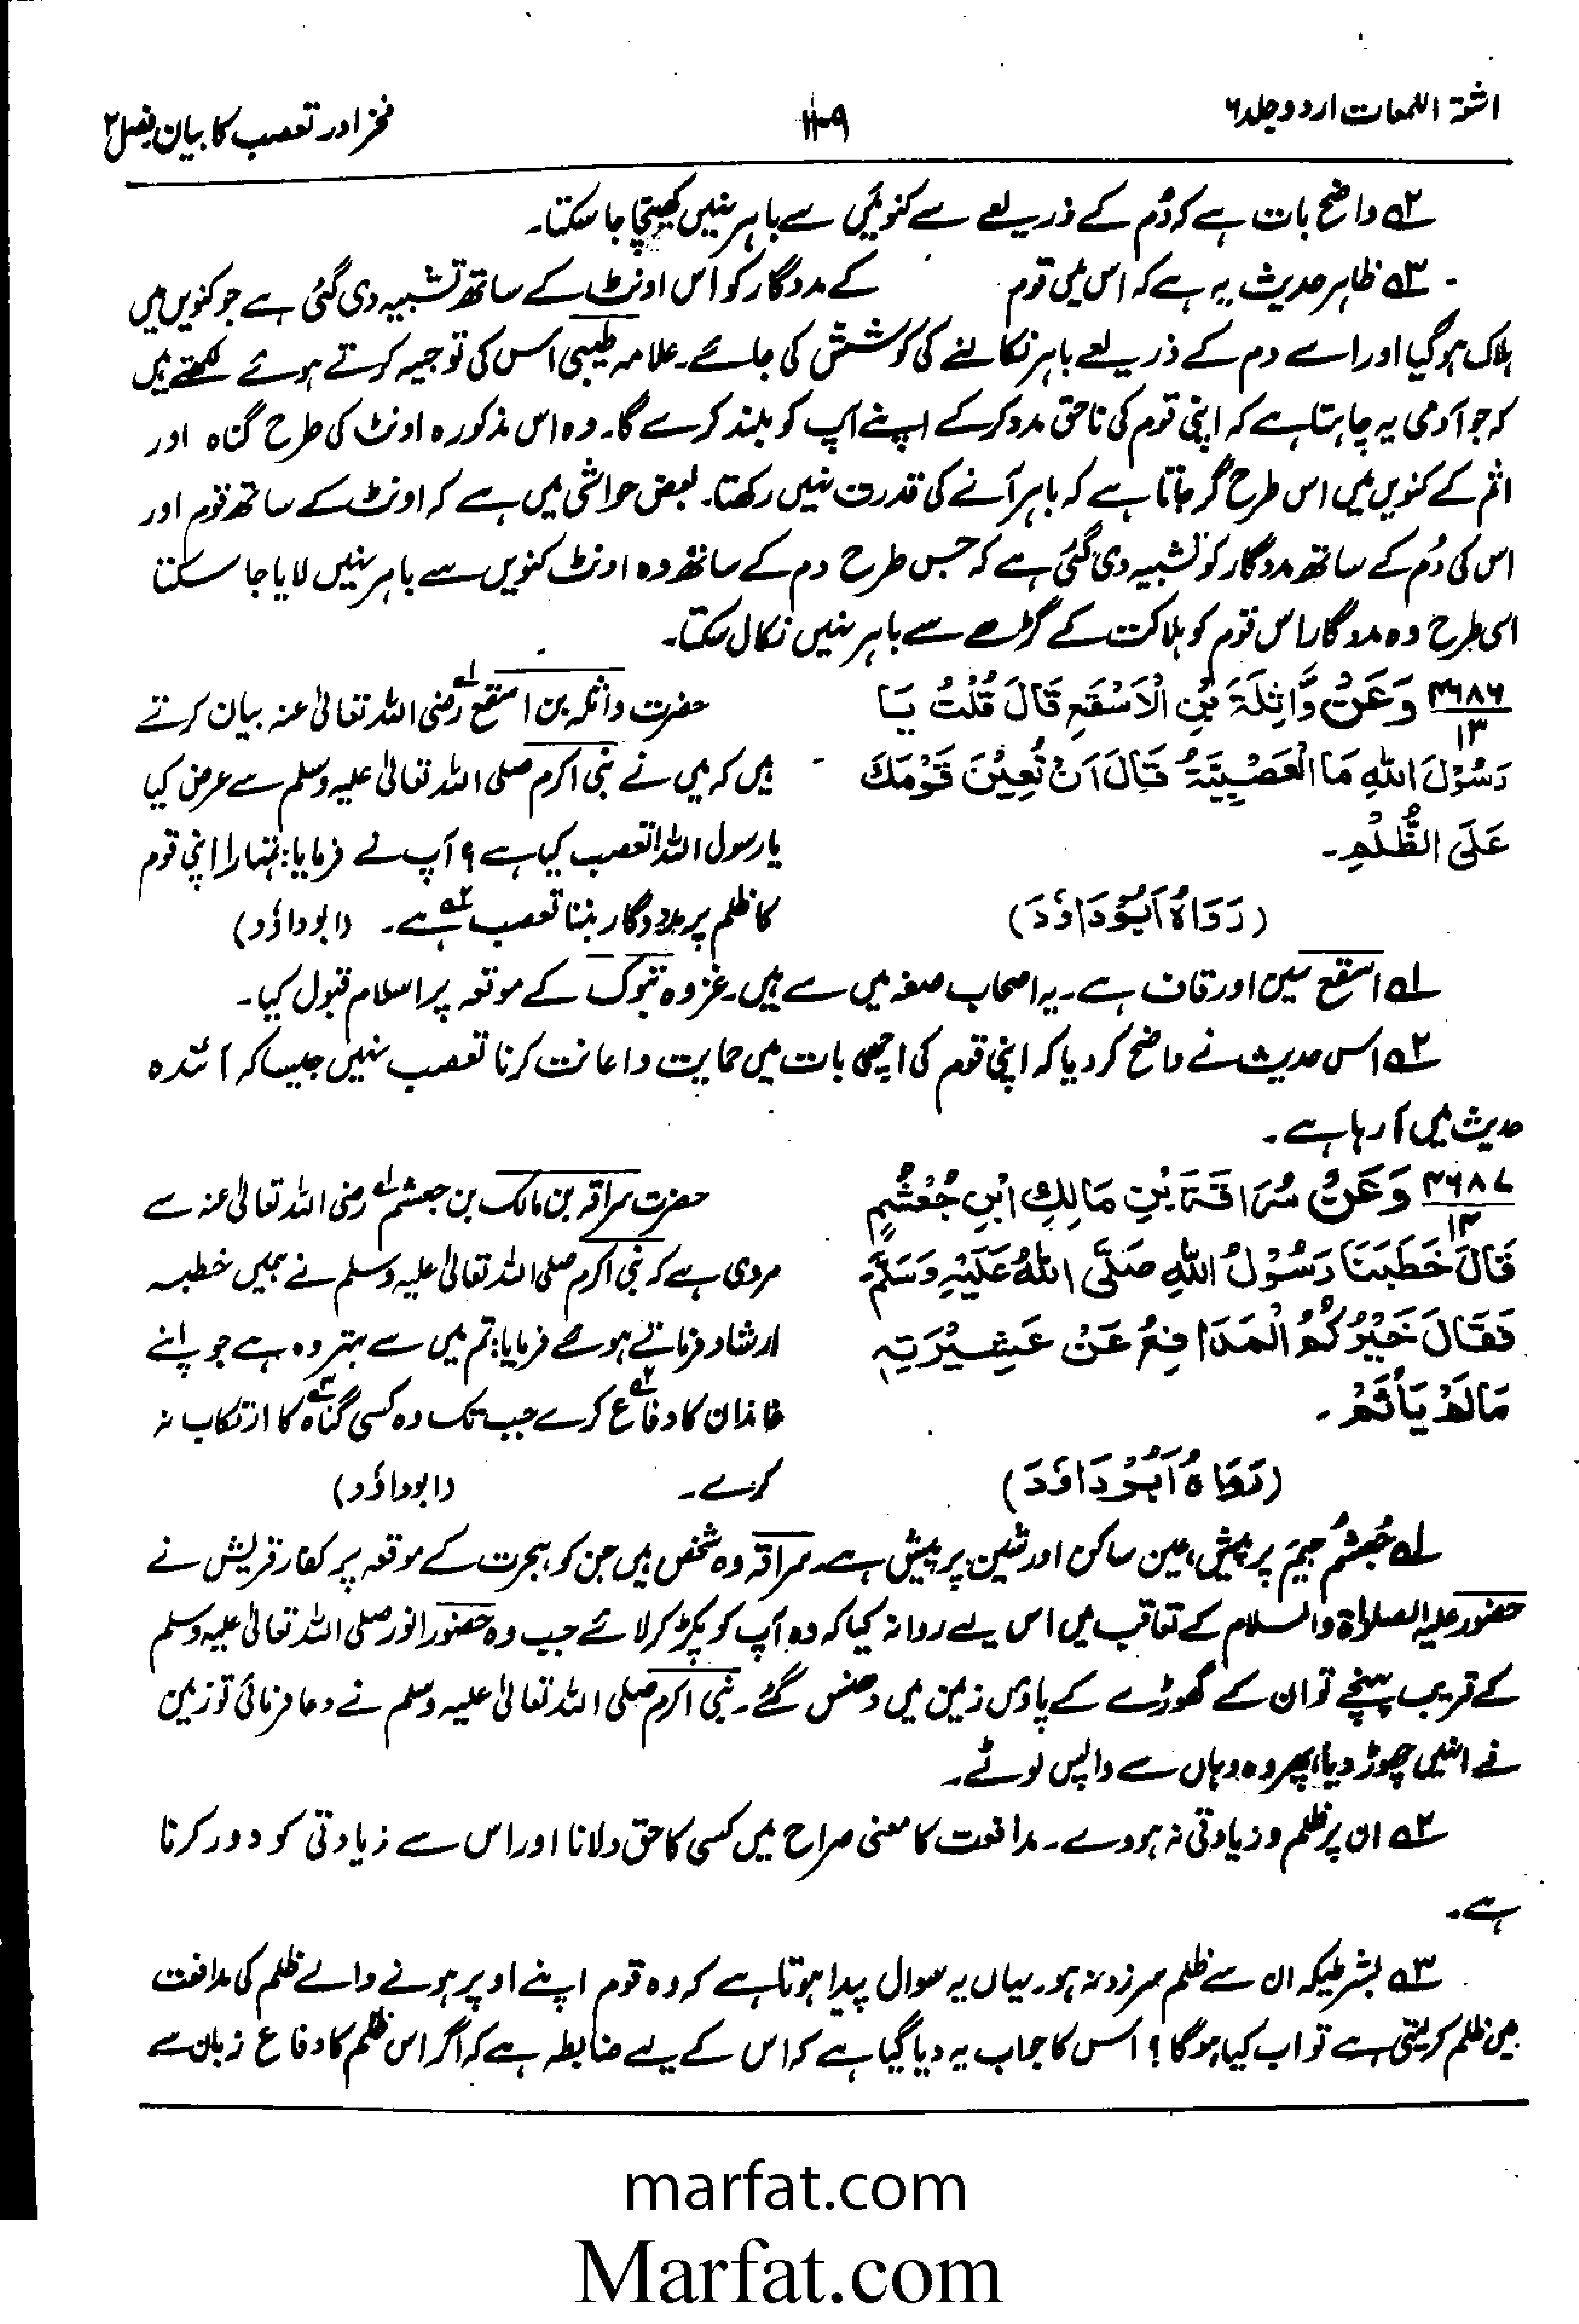 اشعۃ اللمعات اردو جلد ۶
۱۰۹
فخر اور تعصب کا بیان فصل ۲
۲؎ واضح بات ہے کہ دُم کے ذریعے سے کنوئیں سے باہر نہیں کھینچا جا سکتا۔
۳؎ ظاہر حدیث یہ ہے کہ اس میں قوم کے مددگار کو اس اونٹ کے ساتھ تشبیہ دی گئی ہے جو کنویں میں
ہلاک ہو گیا اور اسے دم کے ذریعے باہر نکالنے کی کوشش کی جائے۔ علامہ طیبی اس کی توجیہ کرتے ہوئے لکھتے ہیں
کہ جو آدمی یہ چاہتا ہے کہ اپنی قوم کی ناحق مدد کر کے اپنے آپ کو بلند کرے گا۔ وہ اس مذکورہ اونٹ کی طرح گناہ اور
اثم کے کنویں میں اس طرح گر جاتا ہے کہ باہر آنے کی قدرت نہیں رکھتا۔ بعض حواشی میں ہے کہ اونٹ کے ساتھ قوم اور
اس کی دُم کے ساتھ مددگار کو تشبیہ دی گئی ہے کہ جس طرح دم کے ساتھ وہ اونٹ کنویں سے باہر نہیں لایا جا سکتا
اسی طرح وہ مددگار اس قوم کو ہلاکت کے گڑھے سے باہر نہیں نکال سکتا۔
۴۶۸۶/۱۳ وَعَنْ وَّاثِلَةَ بْنِ الْاَسْقَعِ قَالَ قُلْتُ يَا
رَسُوْلَ اللّٰهِ مَا الْعَصَبِيَّةُ قَالَ اَنْ تُعِيْنَ قَوْمَكَ
عَلَى الظُّلْمِ۔
(رَوَاهُ اَبُوْ دَاوٗدَ)
حضرت واثلہ بن اسقع ۱؎ رضی اللہ تعالیٰ عنہ بیان کرتے
ہیں کہ میں نے نبی اکرم صلی اللہ تعالیٰ علیہ وسلم سے عرض کیا
یا رسول اللہ! تعصب کیا ہے؟ آپ نے فرمایا: تمہارا اپنی قوم
کا ظلم پر مددگار بننا تعصب ۲؎ ہے۔ (ابوداؤد)
۱؎ اسقع سین اور قاف ہے۔ یہ اصحاب صفہ میں سے ہیں۔ غزوہ تبوک کے موقعہ پر اسلام قبول کیا۔
۲؎ اس حدیث نے واضح کر دیا کہ اپنی قوم کی اچھی بات میں حمایت و اعانت کرنا تعصب نہیں جیسا کہ آئندہ
حدیث میں آ رہا ہے۔
۴۶۸۷/۱۴ وَعَنْ سُرَاقَةَ بْنِ مَالِكِ ابْنِ جُعْشُمٍ
قَالَ خَطَبَنَا رَسُوْلُ اللّٰهِ صَلَّى اللّٰهُ عَلَيْهِ وَسَلَّمَ
فَقَالَ خَيْرُكُمُ الْمُدَافِعُ عَنْ عَشِيْرَتِهٖ
مَا لَمْ يَأْثَمْ۔
(رَوَاهُ اَبُوْ دَاوٗدَ)
حضرت سراقہ بن مالک بن جعشم ۱؎ رضی اللہ تعالیٰ عنہ سے
مروی ہے کہ نبی اکرم صلی اللہ تعالیٰ علیہ وسلم نے ہمیں خطبہ
ارشاد فرماتے ہوئے فرمایا: تم میں سے بہتر وہ ہے جو اپنے
خاندان کا دفاع ۲؎ کرے جب تک وہ کسی گناہ ۳؎ کا ارتکاب نہ
کرے۔ (ابوداؤد)
۱؎ جُعشُم جیم پر پیش، عین ساکن اور شین پر پیش ہے۔ سراقہ وہ شخص ہیں جن کو ہجرت کے موقعہ پر کفار قریش نے
حضور علیہ الصلاۃ والسلام کے تعاقب میں اس لیے روانہ کیا کہ وہ آپ کو پکڑ کر لائے جب وہ حضور انور صلی اللہ تعالیٰ علیہ وسلم
کے قریب پہنچے تو ان کے گھوڑے کے پاؤں زمین میں دھنس گئے۔ نبی اکرم صلی اللہ تعالیٰ علیہ وسلم نے دعا فرمائی تو زمین
نے انہیں چھوڑ دیا، پھر وہ وہاں سے واپس لوٹے۔
۲؎ ان پر ظلم و زیادتی نہ ہو دے۔ مدافعت کا معنی صراح میں کسی کا حق دلانا اور اس سے زیادتی کو دور کرنا
ہے۔
۳؎ بشرطیکہ ان سے ظلم سرزد نہ ہو۔ یہاں یہ سوال پیدا ہوتا ہے کہ وہ قوم اپنے اوپر ہونے والے ظلم کی مدافعت
میں ظلم کر لیتی ہے تو اب کیا ہو گا؟ اس کا جواب یہ دیا گیا ہے کہ اس کے لیے ضابطہ ہے کہ اگر اس ظلم کا دفاع زبان سے
marfat.com
Marfat.com